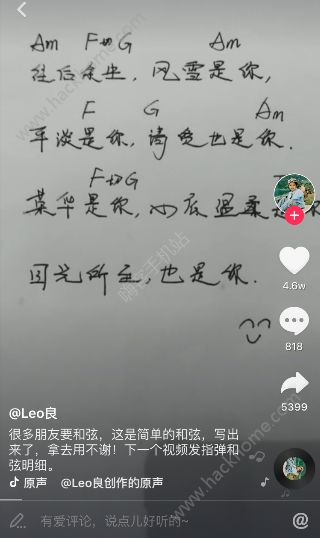 Am F切G Am
往后余生，风雪是你，
F G Am
平淡是你，清贫也是你.
F切G
荣华是你，心底温柔是
目光所至，也是你.
4.6w
818
5399
@Leo良
很多朋友要和弦，这是简单的和弦，写出
来了，拿去用不谢！下一个视频发指弹和
弦明细。
原声 @Leo良创作的原声
有爱评论，说点儿好听的~
@
www.hackhome.com
嗨客手机站